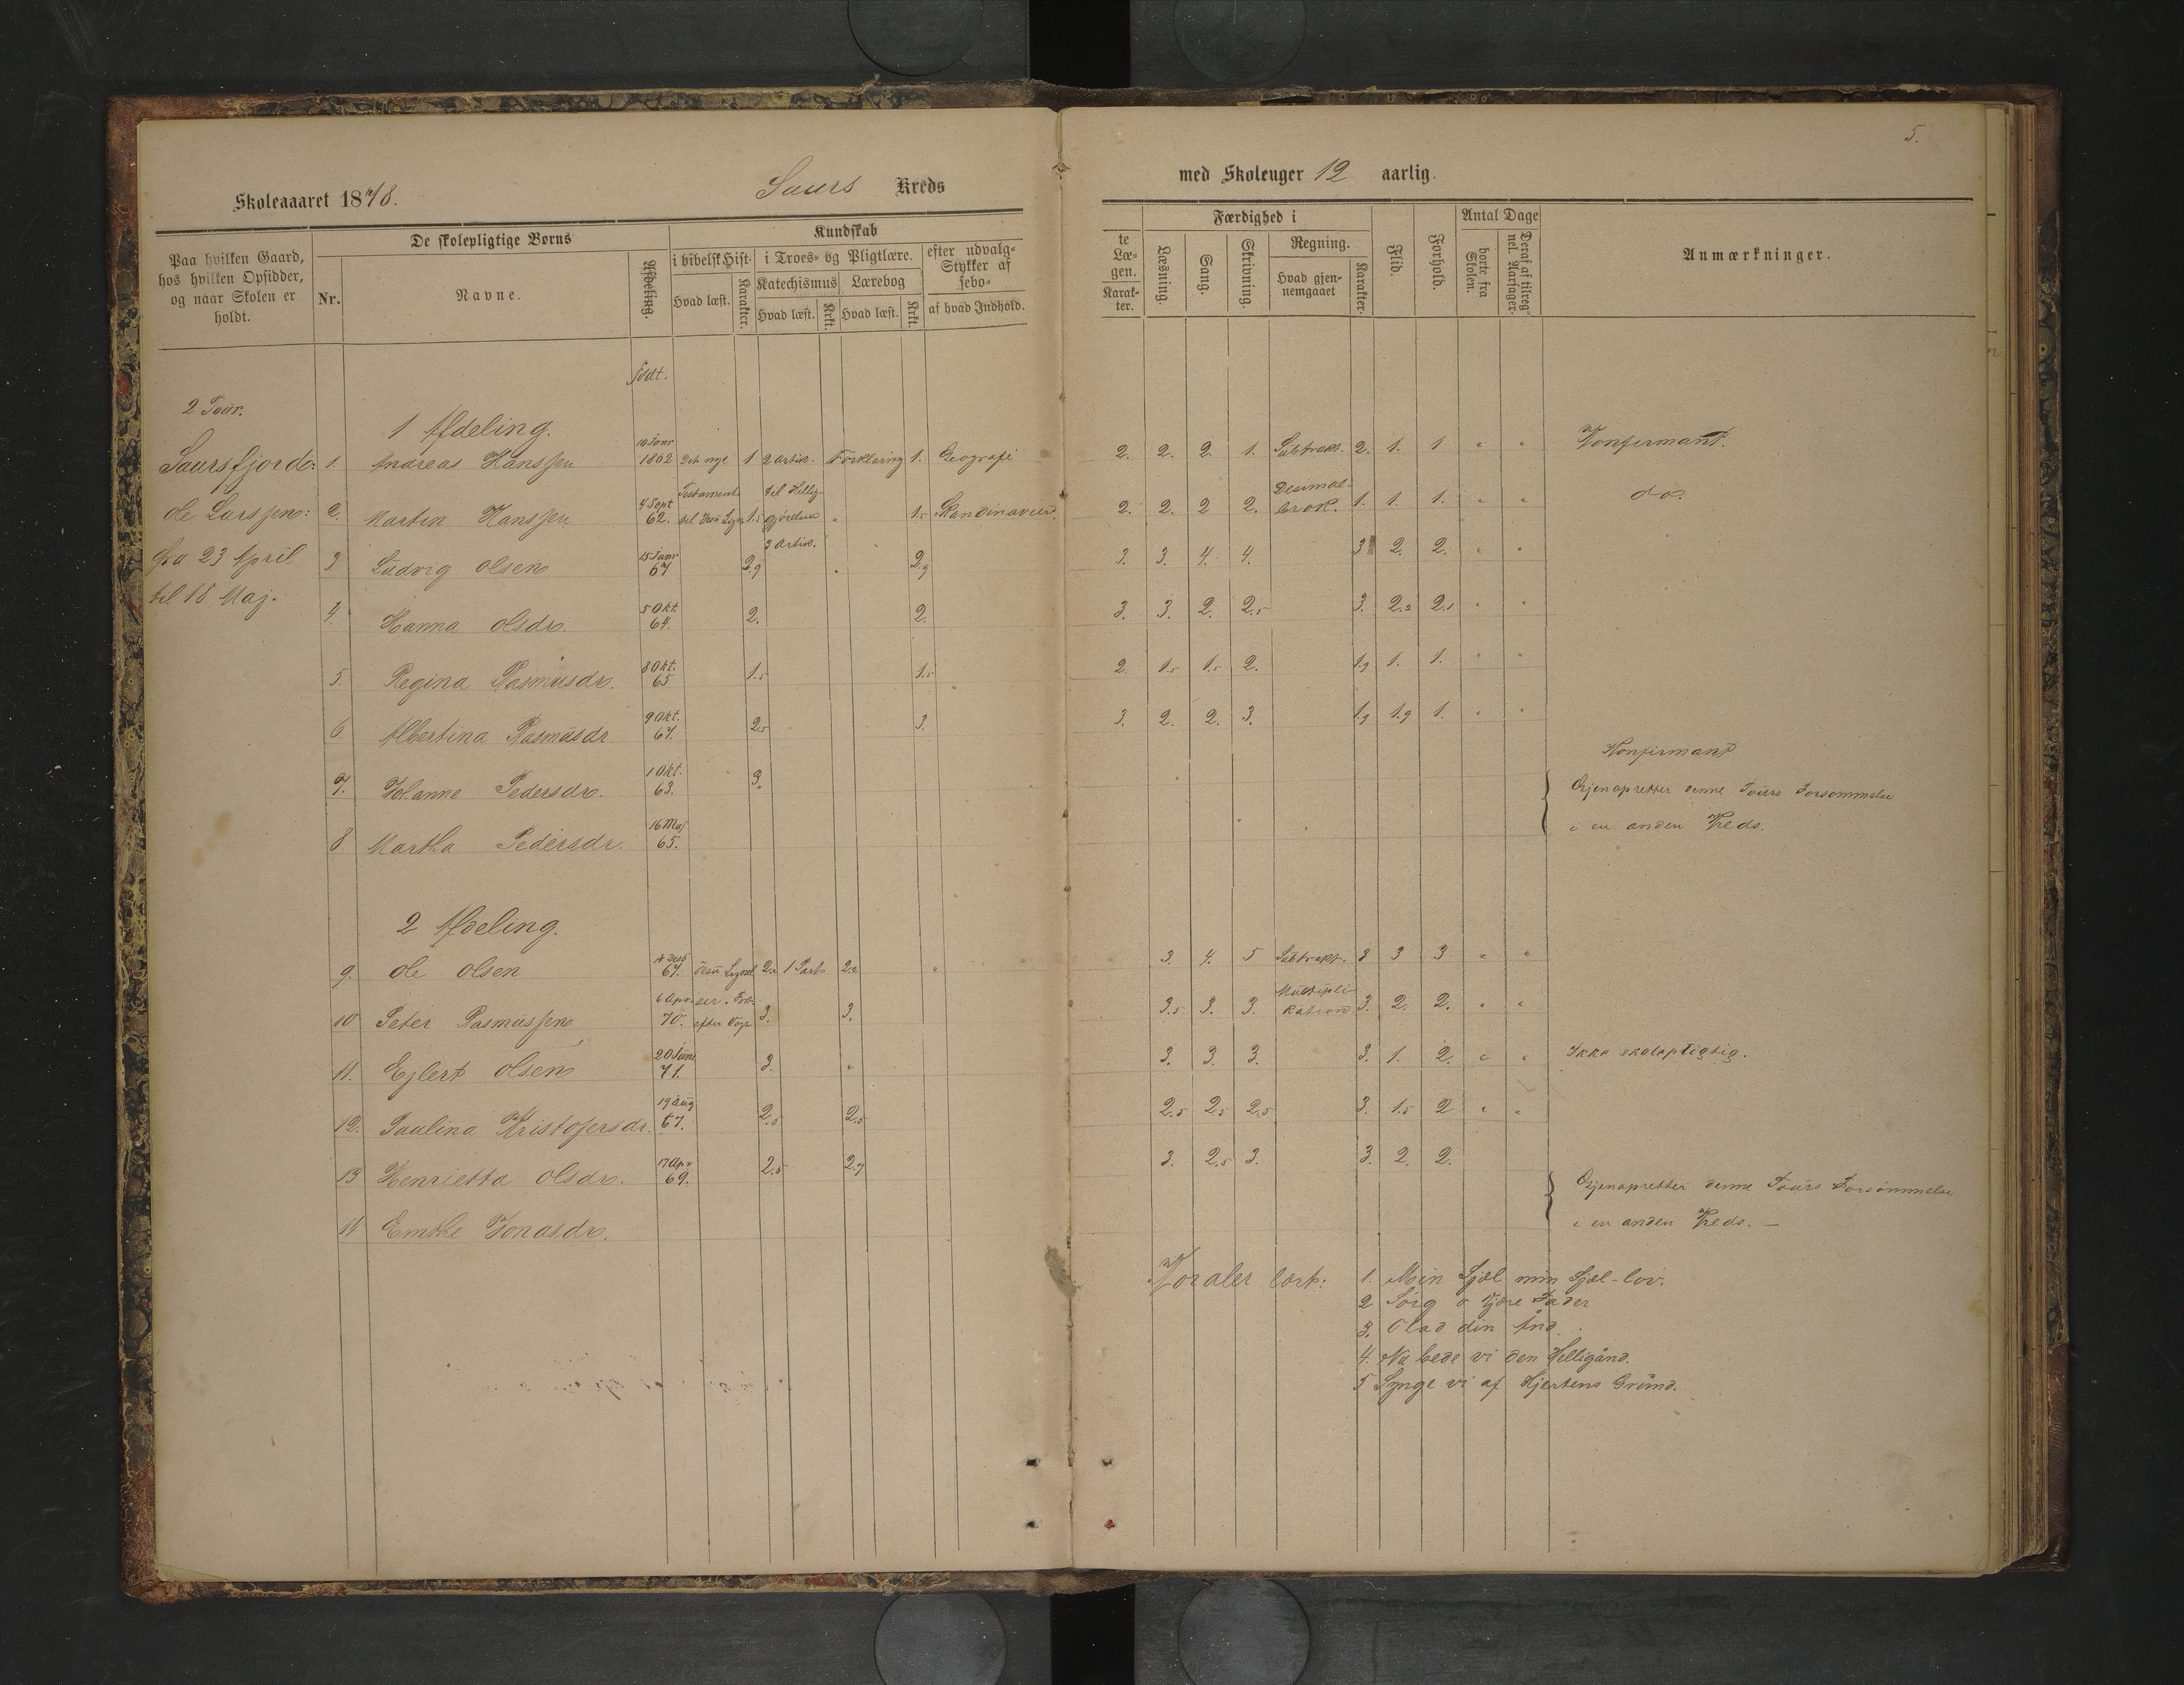 5.
Skoleaaaret 1878. Saurs Kreds med Skoleuger 12 aarlig.
Paa hvilken Gaard, hos hvilken Opsidder, og naar Skolen er holdt.
De skolepligtige Børns
Nr. Navne. Afdeling.
Kundskab
i bibelsk Hist. i Troes- og Pligtlære. efter udvalg- Stykker af sebo-
Hvad læst. Karakter. Katechismus Lærebog
Hvad læst. Krkt. Hvad læst. Krkt. af hvad Indhold.
te Læ- gen. Karak- ter.
Færdighed i
Læsning. Sang. Skrivning. Regning.
Hvad gjen- nemgaaet Karakter.
Flid. Forhold. Antal Dage
borte fra Skolen. Deraf af tilreg- nel. Aarsager.
Anmærkninger.
født.
2 Tour.
1 Afdeling.
Saursfjord: 1. Andreas Hanssen 19 Janr 1862 Det nye 1 2 Artik. Forklaring 1. Geografi 2. 2. 2. 1. Subtrakt. 2. 1. 1 " " Konfirmant.
Ole Larssen: 2. Martin Hanssen 4 Sept 62. Testament til Jesu 1.5 til Hellig- gjørelsen " 1.5 Skandinavien. 2. 2. 2 2. Desimal- brok. 1. 1. 1. " " do.
fra 23 April 3 Ludvig Olsen 15 Janr 67 2.9 3 Artik. " 2.9 3. 3. 4. 4. 3 2. 2. " "
til 18 Maj. 4. Hanna Olsdr. 5 Okt. 64. 2. 2. 3. 3. 2. 2.5 3. 2.2 2.1 " "
5. Regina Rasmusdr. 8 Okt. 65 1.5 1.5 2. 1.5 1.5 2. 1.9 1. 1. " "
6. Albertina Rasmusdr. 9 Okt. 67. 2.5 3. 3. 2. 2. 3. 1.9 1.9 1. " "
7. Johanne Pedersdr. 1 Okt. 63. 3. Konfirmant
8 Martha Pedersdr. 16 Maj 65. Gjenopretter denne Tours Forsømmelse
i en anden Kreds.
2 Afdeling.
9. Ole Olsen 67. Jesu 1 Part 3. 4. 5 Subtrakt. 3 3 3 " "
10 Peter Rasmussen 6 Apr. 70. efter 3. 3. 3.5 3. 3. Multipli- kation 3. 2. 2. " "
11. Ejlert Olsen 20 Juni 71. 3. " 3. 3. 3. 3. 1. 2. " " Ikke skolepligtig.
12. Paulina Kristofersdr. 19 Aug 67. 2.5 2.5 2.5 2.5 2.5 3. 1.5 2 " "
13 Henrietta Olsdr. 17 Apr 69. 2.5 2.7 3. 2.5 3. 3. 2. 2.
Emthe Jonasdr. Gjenopretter denne Tours Forsømmelse
i en anden Kreds. —
Koraler lært: 1. Min Sjæl min Sjæl-lov.
2 Sørg o kjære Fader
3. O lad din Aand.
4. Nu bede vi den Helligånd.
5 Synge vi af Hjertens Grund.